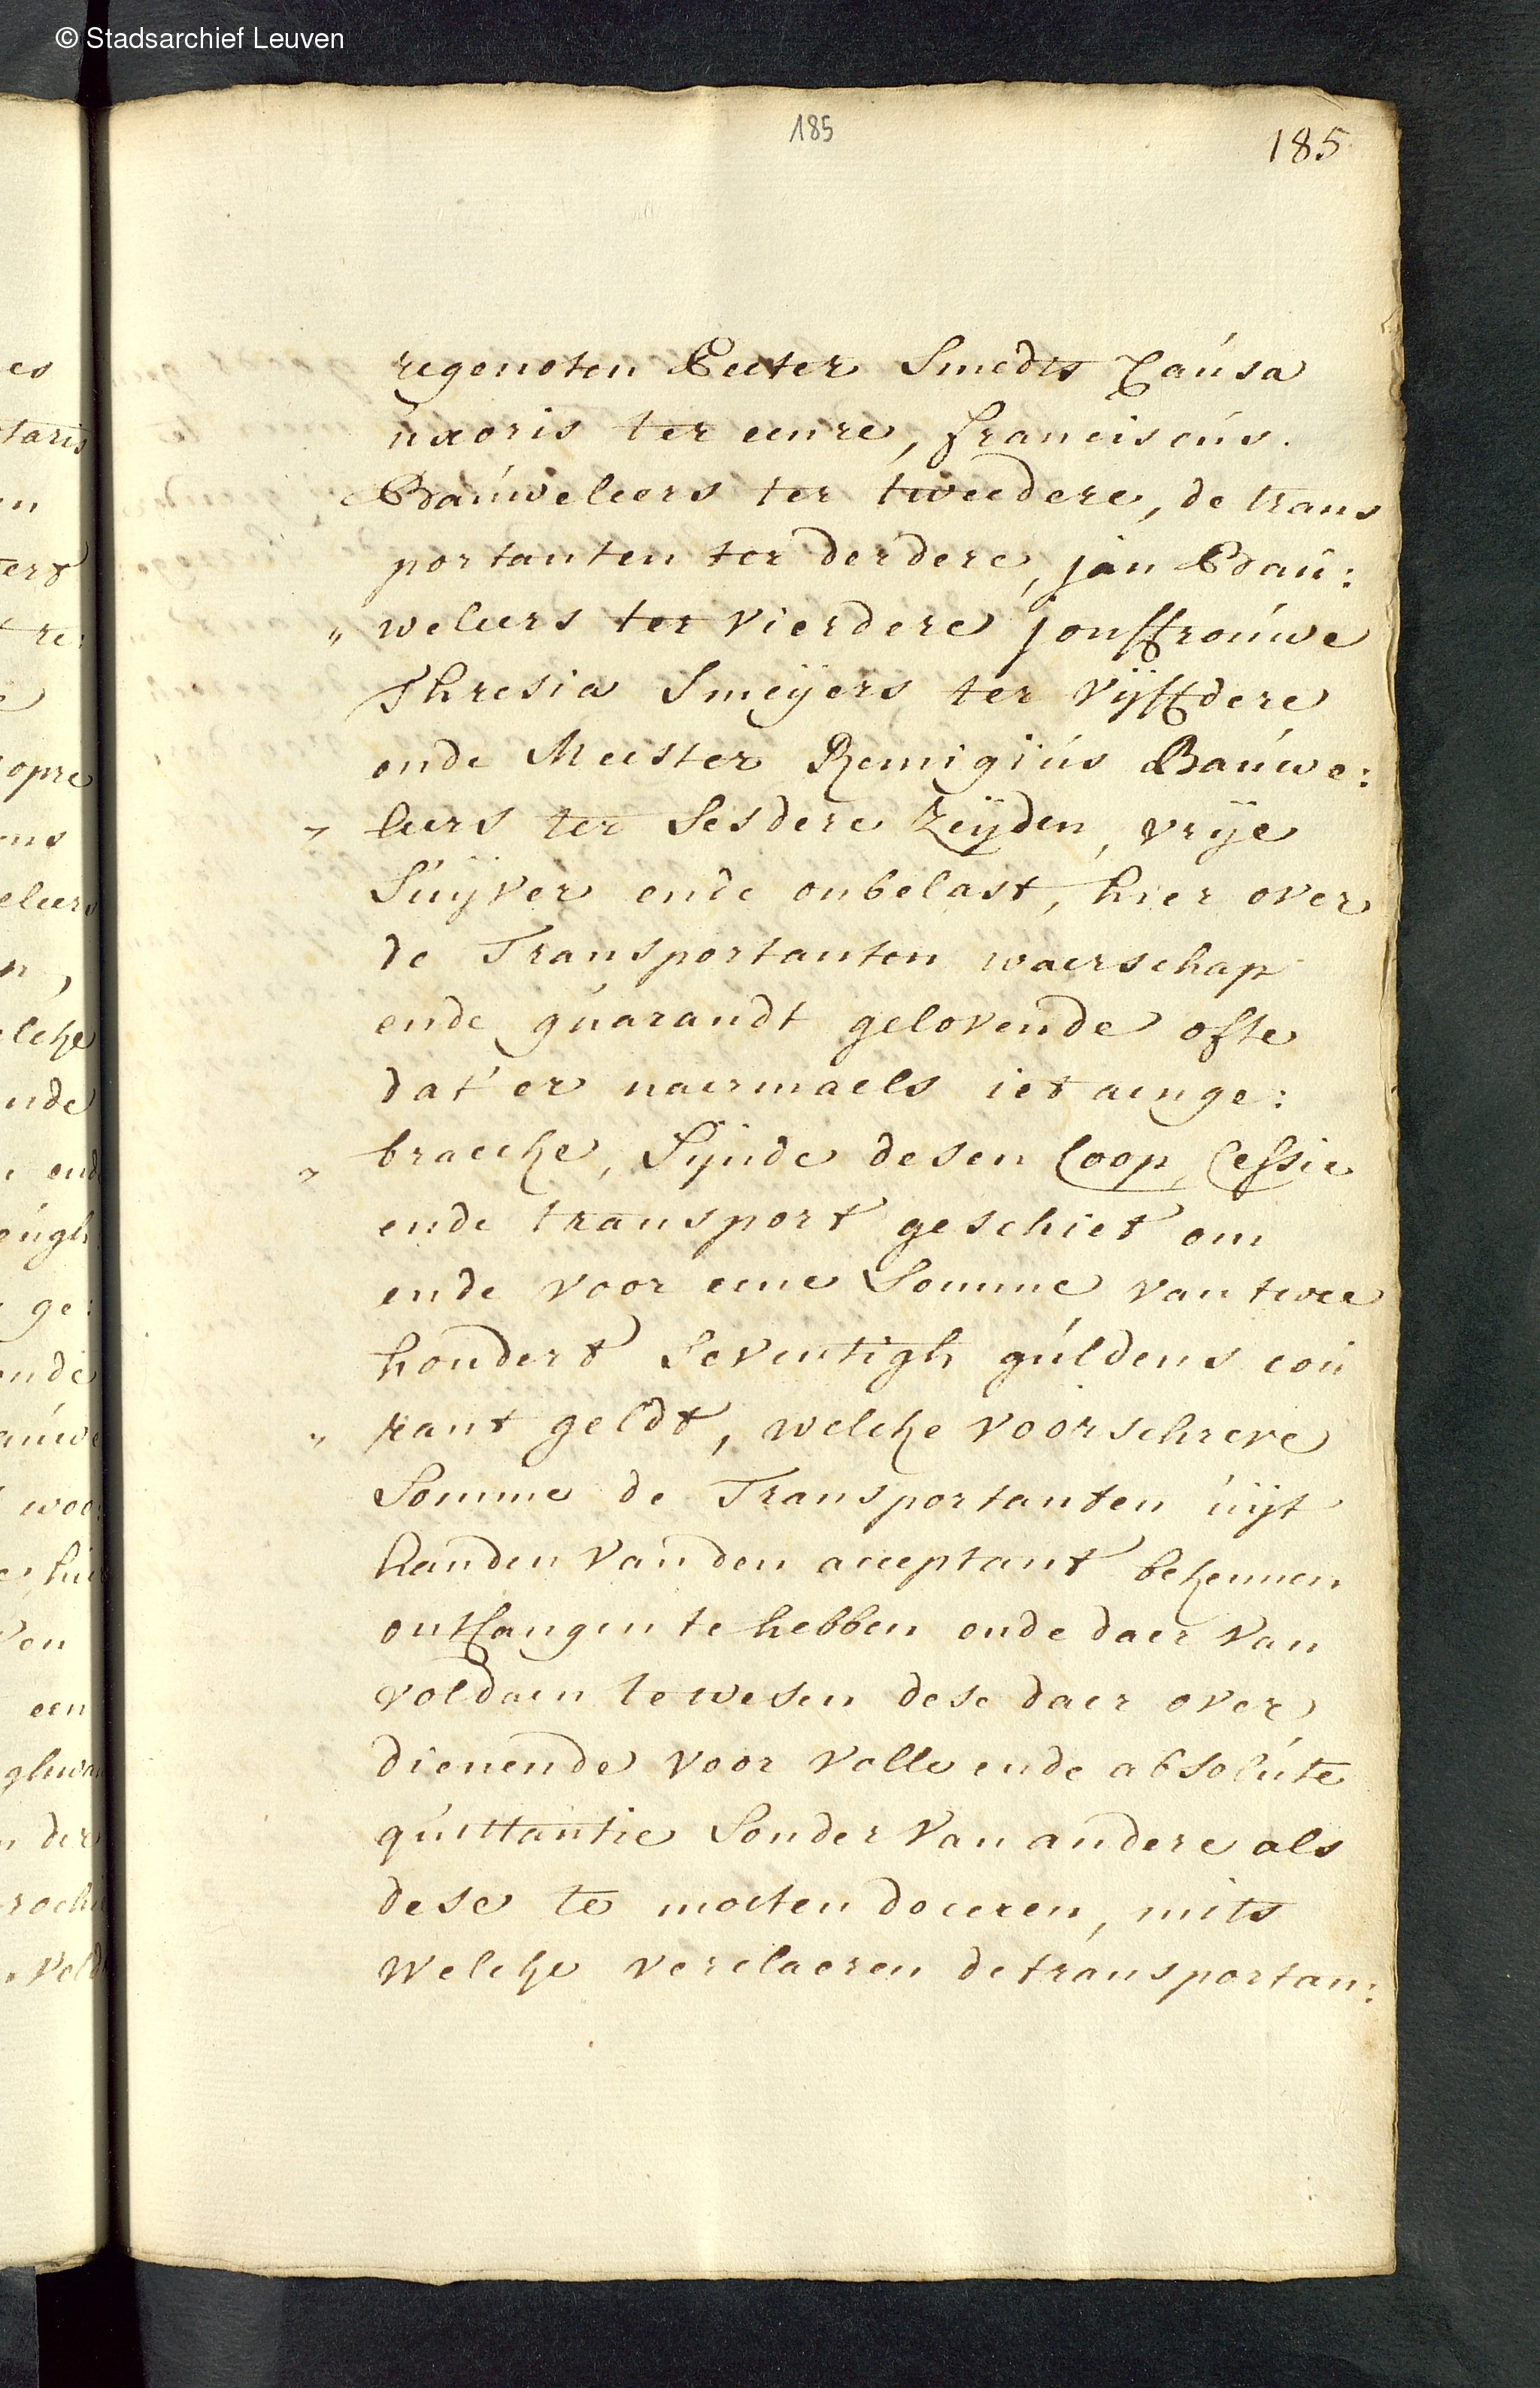 © Stadsarchief Leuven
185
185
regenoten Peeter Smedts Causa
uxoris ter eenre, franciscus.
Bauweleers ter tweedere, de trans
portanten ter derdere, jan Bau:
" weleers ter vierdere jouffrouwe
Thresia Smeÿers ter vijffdere
ende Meester Remigius Bauwe:
" leers ter Sesdere Zeijden, vrije
Suijver ende onbelast, hier over
de Transportanten waerschap
ende guarandt gelovende ofte
dat'er naermaels iet aenge:
" braecke, Sijnde desen Coop, Cessie
ende transport geschiet om
ende voor eene Somme van twee
hondert Seventigh guldens cou
" rant geldt, welcke voorschreve
Somme de Transportanten uijt
handen vanden acceptant bekennen
ontfangen te hebben ende daer van
voldaen te wesen dese daer over
dienende voor volle ende absolute
quittantie Sonder van andere als
dese te moeten doceren, mits
welcke verclaeren de transportan:
es
taris
en
tert
re:
opre
ens
eleers
n,
elcke
ende
ende
eugh
ge:
ende
auwe
woe
een